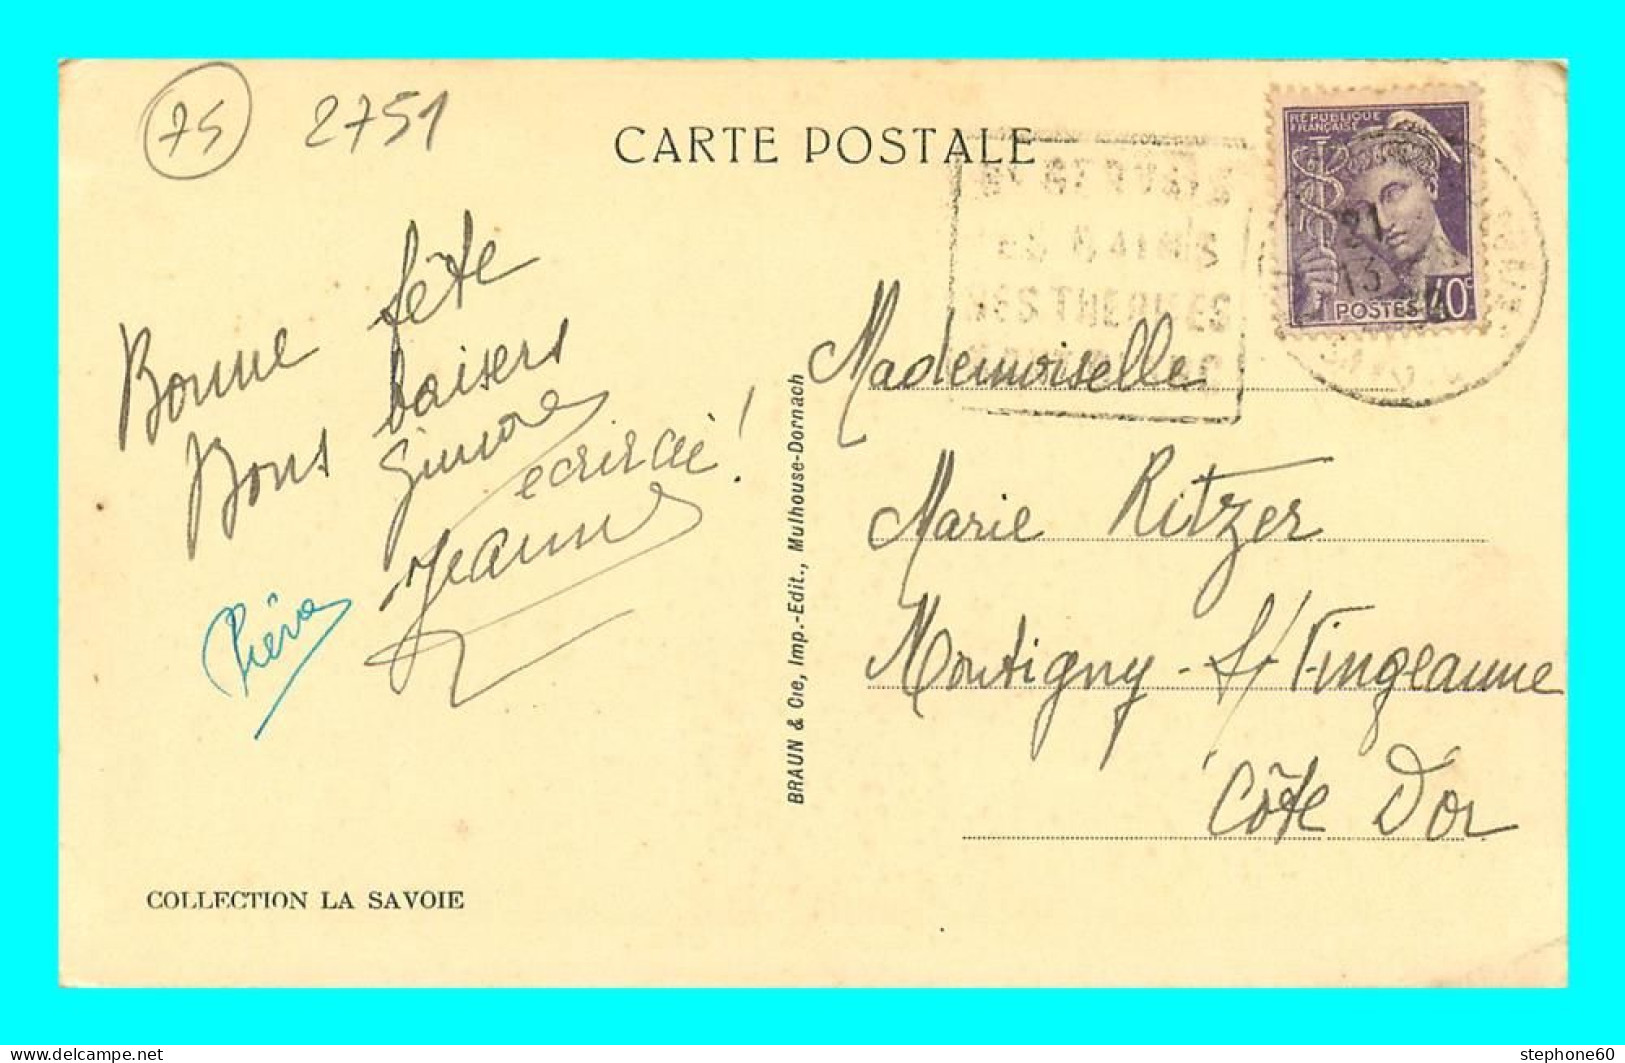 75 2751
CARTE POSTALE
RÉPUBLIQUE
FRANÇAISE
POSTES 40c
21
13
ST GERVAIS
LES BAINS
SES THERMES
Bonne fête
Bons baisers
Simone
écrirai !
Jeanne
BRAUN & Cie, Imp.-Edit., Mulhouse-Dornach
Mademoiselle
Marie Ritzer
Montigny - s/ Vingeanne
Côte d'or
COLLECTION LA SAVOIE
www.delcampe.net
stephone60